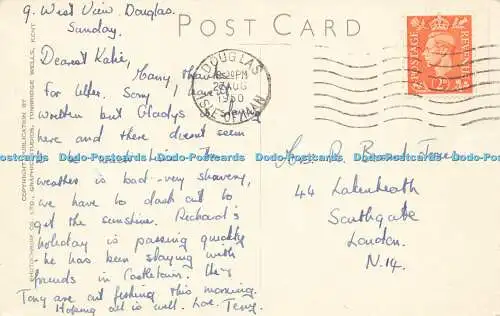 9. West View. Douglas.
Sunday.
POST CARD
Dearest Katie,
Many thanks
for letter. Sorry I haven't
written but Gladys
here and there doesn't seem
to
weather is bad - very showery,
we have to dash out to
get the sunshine. Richard's
holiday is passing quickly
he has been staying with
friends in Castletown. He &
Tony are out fishing this morning.
Hoping all is well. Love. Terry.
DOUGLAS
PM
27 AUG
1950
ISLE OF MAN
POSTAGE
REVENUE
2D
Mrs. R.
44 Lakenheath
Southgate
London.
N.14.
COPYRIGHT PUBLICATION BY
PHOTOCHROM CO. LTD., GRAPHIC STUDIOS, TUNBRIDGE WELLS, KENT
Postcards Dodo-Postcards Dodo-Postcards Dodo-Postcards Dodo-Postcards Dodo-Postcards